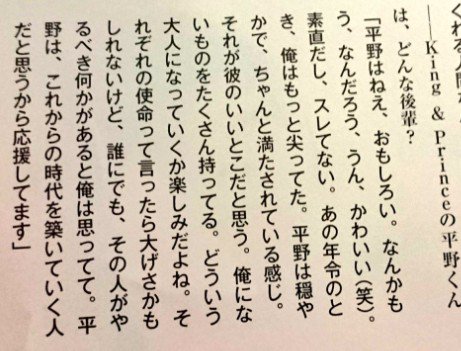 くれる人間な
――King & Princeの平野くん
は、どんな後輩？
「平野はねえ、おもしろい。なんかも
う、なんだろう、うん、かわいい（笑）。
素直だし、スレてない。あの年令のと
き、俺はもっと尖ってた。平野は穏や
かで、ちゃんと満たされている感じ。
それが彼のいいとこだと思う。俺にな
いものをたくさん持ってる。どういう
大人になっていくか楽しみだよね。そ
れぞれの使命って言ったら大げさかも
しれないけど、誰にでも、その人がや
るべき何かがあると俺は思ってて。平
野は、これからの時代を築いていく人
だと思うから応援してます」